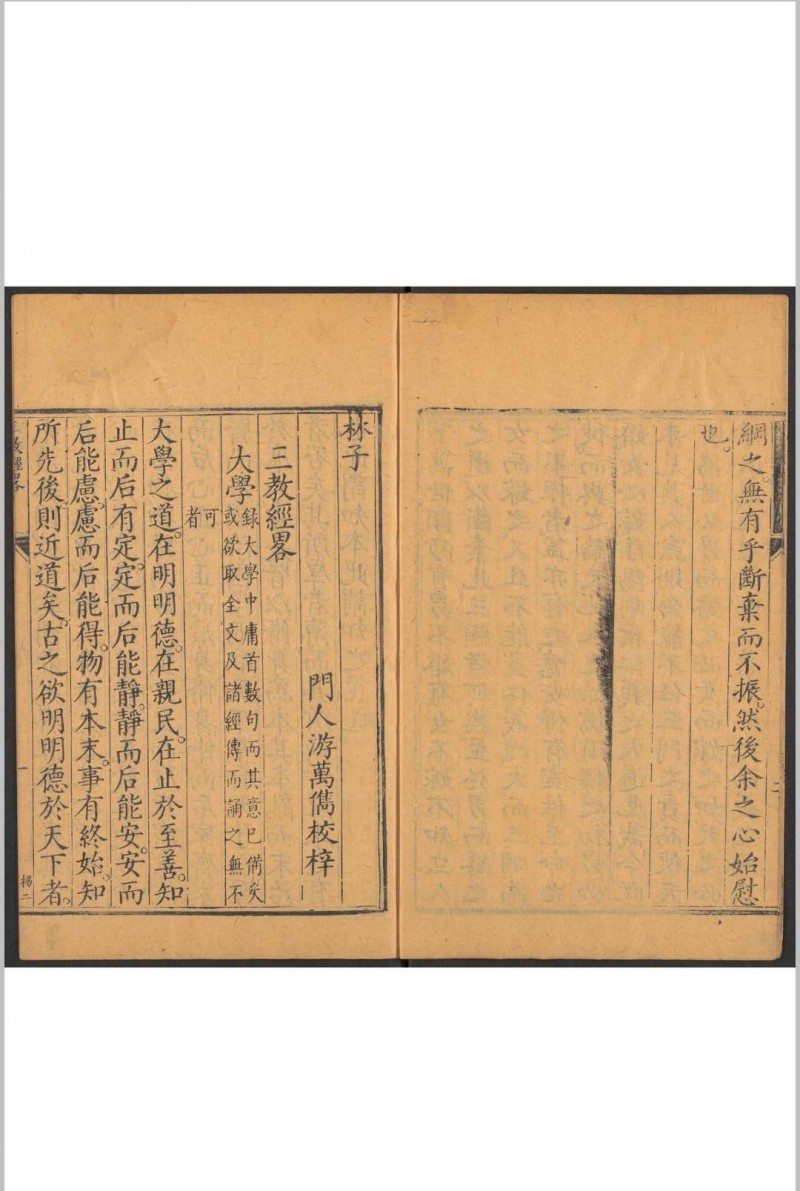 綱之。無有乎斷棄而不振。然後余之心始慰
也。
二
林子
門人游萬儁校梓
三教經畧
大學
錄大學中庸首數句而其意已備矣
或欲取全文及諸經傳而誦之無不
可
者
大學之道。在明明德。在親民。在止於至善。知
止而后有定。定而后能靜。靜而后能安。安而
后能慮。慮而后能得。物有本末。事有終始。知
所先後。則近道矣。古之欲明明德於天下者。
教經畧
一
楊二